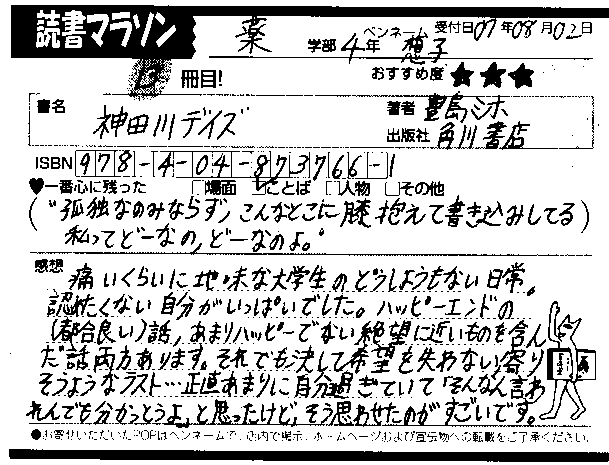 読書マラソン
薬 学部 4年 ペンネーム 想子 受付日07年08月02日
13 冊目!
おすすめ度 ★★★
書名 神田川デイズ
著者 豊島ミホ
出版社 角川書店
ISBN 978-4-04-873766-1
♥一番心に残った □場面 ☑ことば □人物 □その他
("孤独なのみならず、こんなとこに膝抱えて書き込みしてる
私ってどーなの、どーなのよ。")
感想
痛いくらいに地味な大学生のどうしようもない日常。
認めたくない自分がいっぱいでした。ハッピーエンドの
(都合良い)話、あまりハッピーでない絶望に近いものを含ん
だ話両方あります。それでも決して希望を失わない、寄り
そうようなラスト…正直あまりに自分過ぎていて「そんなん言わ
れんでも分かっとうよ」と思ったけど、そう思わせたのがすごいです。
●お寄せいただいたPOPはペンネームで、店内で掲示、ホームページおよび宣伝物への転載をご了承ください。